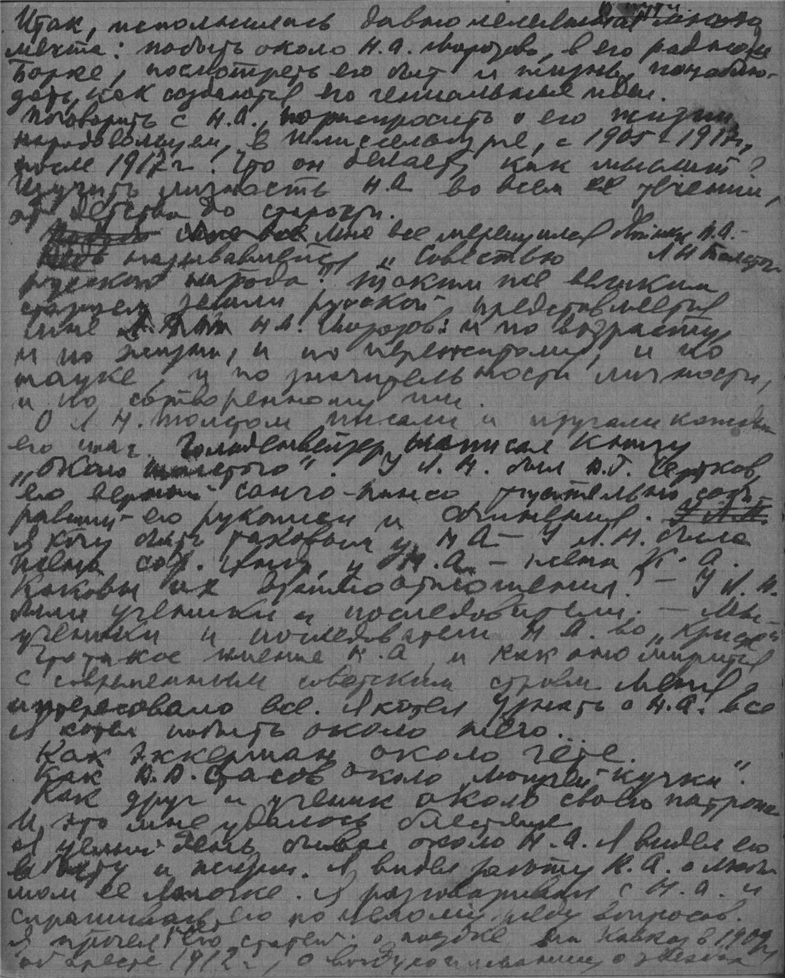 Итак, исполнилась давно лелеянная мною
мечта: побыть около Н.А. Морозова, в его родном
Борке, посмотреть его быт и жизнь, понаблю-
дать, как создаются его гениальные идеи.
Поговорить с Н.А., порасспросить о его жизни
народовольцем, в Шлиссельбурге, с 1905-1917,
после 1917 г. Что он делает, как мыслит?
Изучить личность Н.А во всем её течении,
от детства до старости.
мне все мерещился Н.А.-
называвшийся „Совестью Л Н Толстой
русского народа". Таким же великим
старцем земли русской представляется
мне Н.А. Морозов: и по возрасту,
и по жизни, и по пережитому, и по
науке, и по значительности личности,
и по сотворенному им.
О Л.Н. Толстом писали и каждый
его шаг. Гольденвейзер написал книгу
„Около Толстого". У Л.Н. был В.Г. Чертков,
его верный санчо-панса тщательно соби-
равший его рукописи и
Я хочу быть таковым у Н А - У Л.Н. была
жена Соф. Андр, у Н.А. - жена К.А.
Каковы их взаимоотношения? - У Л.Н.
были ученики и последователи. - Мы-
ученики и последователи Н.А. по „Христу"
Что такое имение Н.А, и как оно мирится
с современным советским строем. Меня
интересовало все. Я хотел узнать о Н.А. все
Я хотел побыть около него...
Как Эккерман около Гете.
Как В.В. Стасов около „могучей кучки".
Как друг и ученик около своего патрона
И это мне удалось блестяще
Я целый день бывал около Н.А. Я видел его
в быту и жизни. Я видел работу Н.А. о
Я разговаривал с Н.А. и
спрашивал его по целому ряду вопросов.
Я прочел его статьи о поездке на Кавказ в 1909,
об аресте 1912 г, о воздухоплавании, о звездах